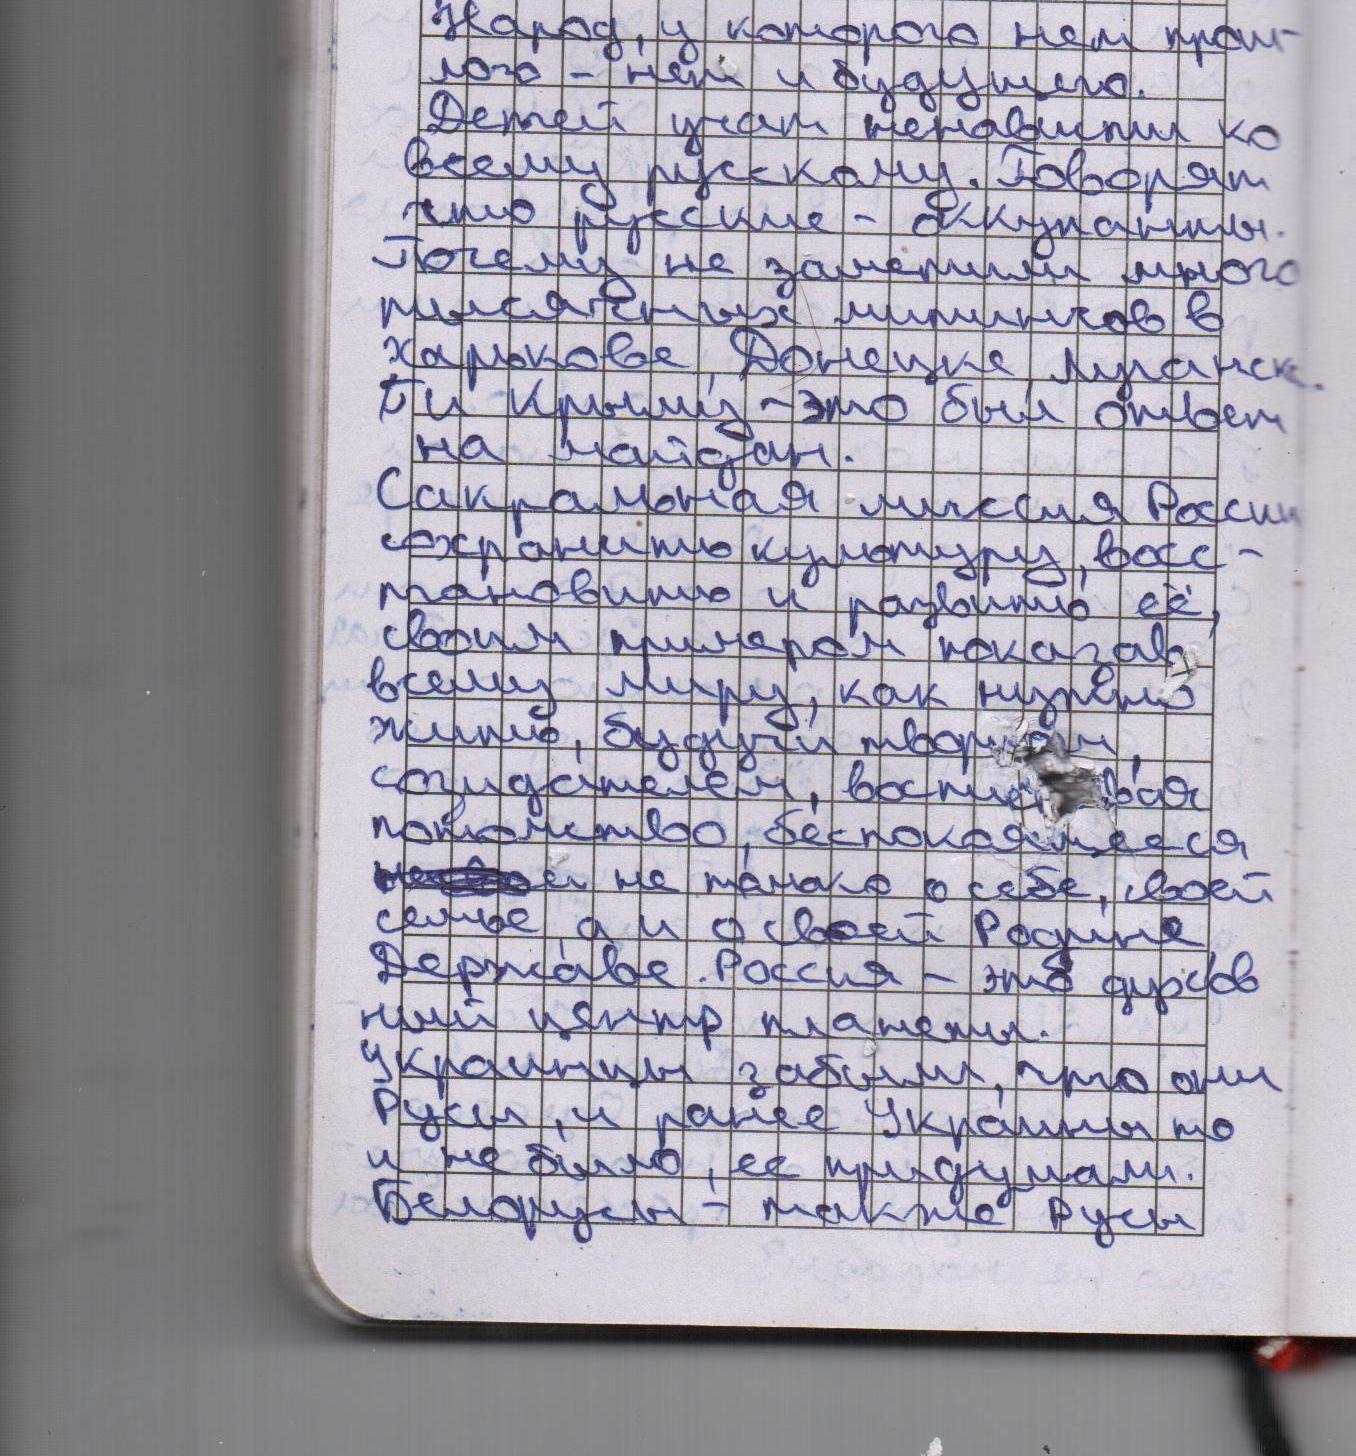 Народ, у которого нем прош-
лого – нет и будущего.
Детей учат ненависти ко
всему русскому. Говорят
что русские – оккупанты.
Почему не заметили много
тысячных митингов в
Харькове, Донецке, Луганск.
Е и Крыму – это был ответ
на майдан.
Сакральная миссия России
сохранить культуру, восс-
тановить и развить её,
своим примером показав
всему миру, как нужно
жить, будучи творцом,
созидателем,
потомство, беспокоящееся
не только о себе, своей
семье, а и о своей Родине
Державе. Россия – это духов
ный центр планеты.
Украинцы забыли, что они
Русы, и ранее Украины то
и не было, ее придумали.
Белорусы – также Русы